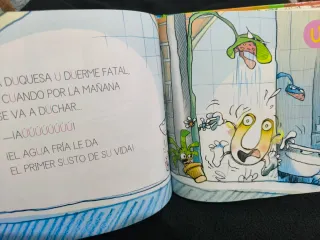 A DUQUESA U DUERME FATAL
CUANDO POR LA MAÑANA
SE VA A DUCHAR...
—¡AÚÚÚÚÚÚÚÚ!
¡EL AGUA FRÍA LE DA
EL PRIMER SUSTO DE SU VIDA!
U